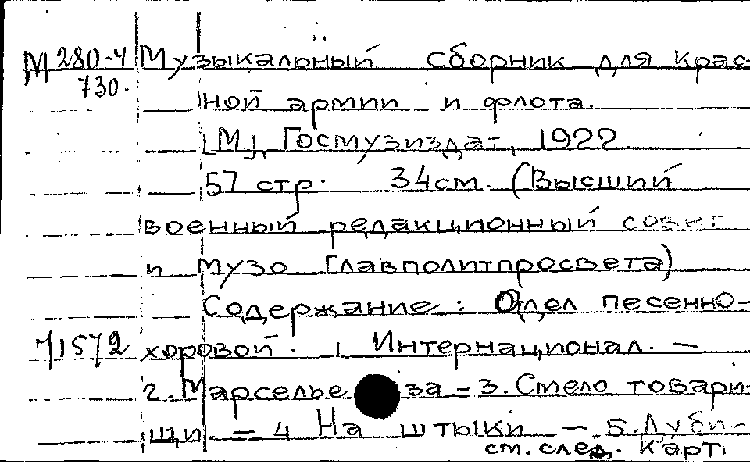 М 280-4 Музыкальный сборник для крас-
730. ной армии и флота.
[М], Госмузиздат, 1922
57 стр. 34см. (Высший
военный редакционный совет
и Музо Главполитпросвета)
Содержание: Отдел песенно-
71572 хоровой. 1 Интернационал. —
2. Марселье за – 3. Смело товари-
щи – 4 На штыки – 5. Дуби-
см. след. карт.